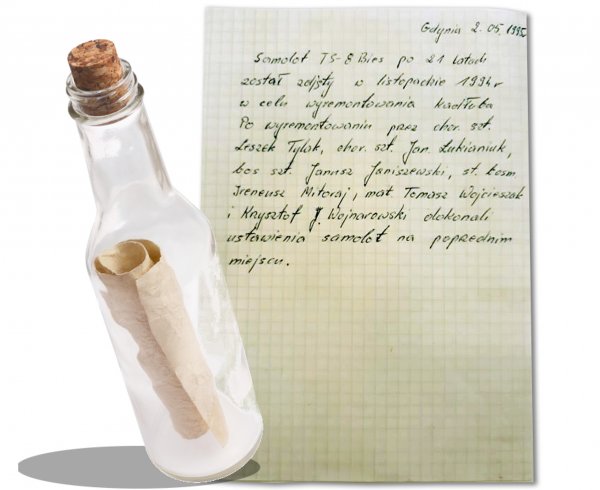 Gdynia 2.05.1995
Samolot TS-8 Bies po 21 latach
został zdjęty w listopadzie 1994r
w celu wyremontowania kadłuba
Po wyremontowaniu przez chor. szt.
Leszek Tylak, chor. szt. Jan. Łukianiuk,
bos szt. Janusz Janiszewski, st. bosm.
Ireneusz Mitoraj, mat Tomasz Wojcieszak
i Krzysztof J. Wojnarowski dokonali
ustawienia samolot na poprzednim
miejscu.